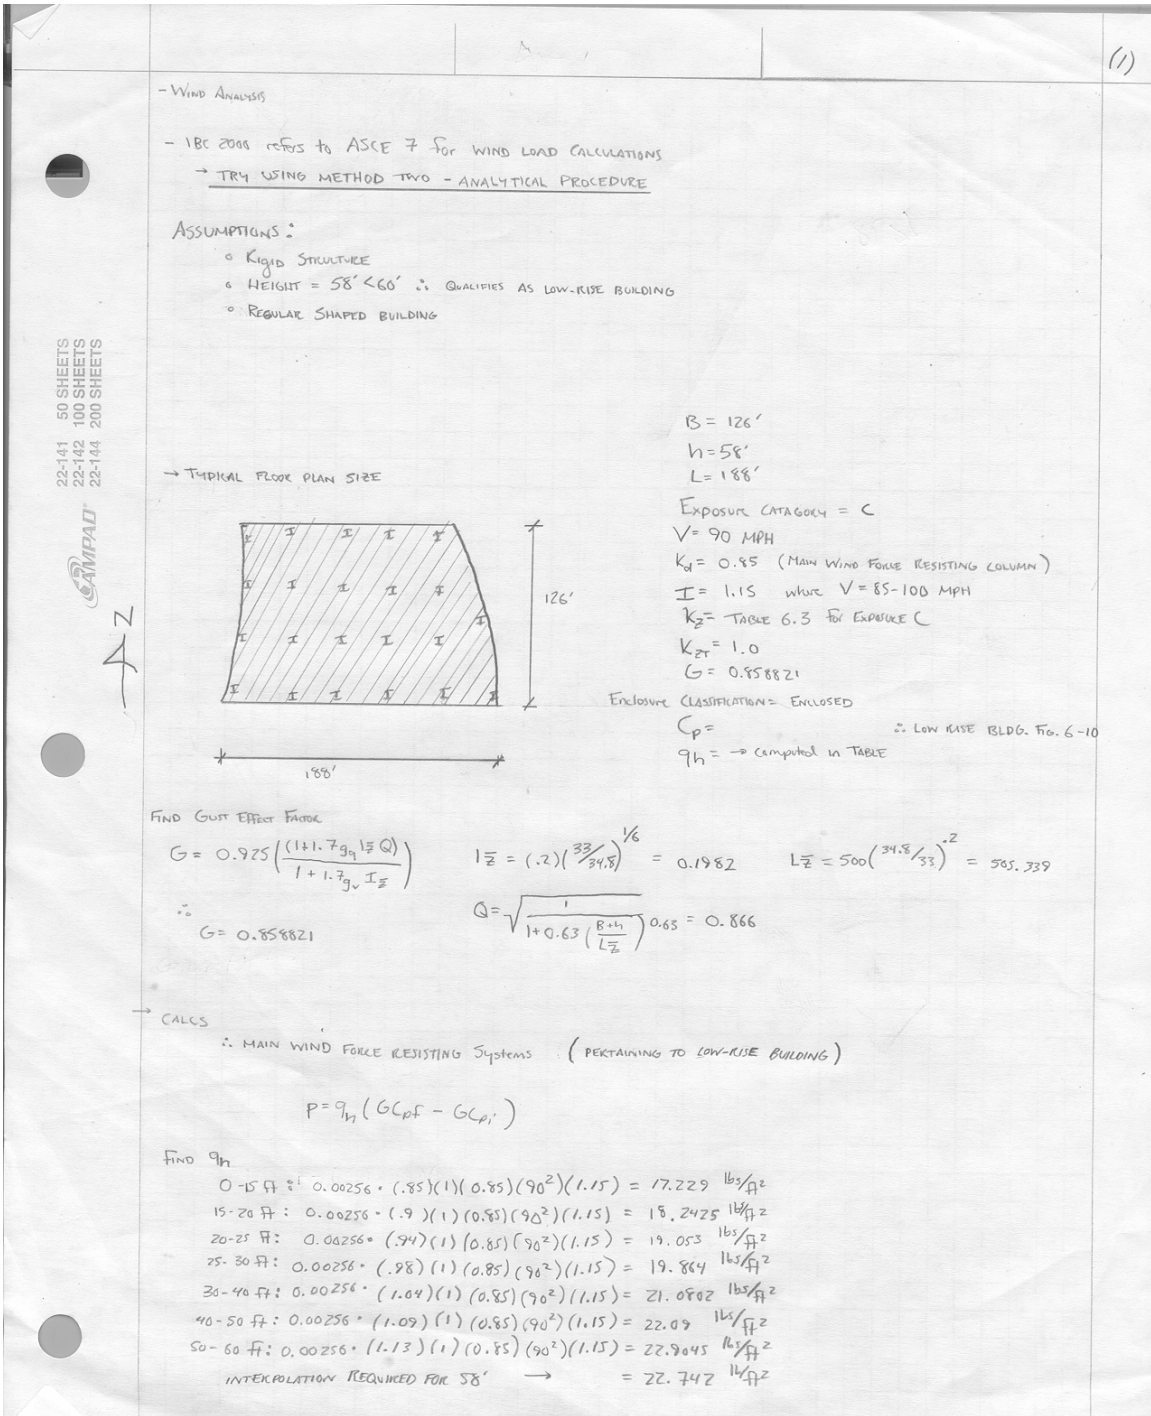 (1)
- WIND ANALYSIS
- IBC 2000 refers to ASCE 7 for WIND LOAD CALCULATIONS
→ TRY USING METHOD TWO - ANALYTICAL PROCEDURE
ASSUMPTIONS:
° RIGID STRUCTURE
° HEIGHT = 58' < 60' ∴ QUALIFIES AS LOW-RISE BUILDING
° REGULAR SHAPED BUILDING
22-141 50 SHEETS
22-142 100 SHEETS
22-144 200 SHEETS
AMPAD®
N
→ TYPICAL FLOOR PLAN SIZE
126'
188'
B = 126'
h = 58'
L = 188'
EXPOSURE CATAGORY = C
V = 90 MPH
Kd = 0.85 (MAIN WIND FORCE RESISTING COLUMN)
I = 1.15 where V = 85-100 MPH
Kz = TABLE 6.3 for EXPOSURE C
KZT = 1.0
G = 0.858821
Enclosure CLASSIFICATION = ENCLOSED
Cp = ∴ LOW RISE BLDG. FIG. 6-10
qh = → computed in TABLE
FIND GUST EFFECT FACTOR
G = 0.925 ((1+1.7gq Iz̄ Q) / (1+1.7gv Iz̄))
Iz̄ = (.2)(33/34.8)^1/6 = 0.1982
Lz̄ = 500(34.8/33)^.2 = 505.339
∴
G = 0.858821
Q = √(1 / (1+0.63((B+h)/Lz̄)^0.63)) = 0.866
→ CALCS
∴ MAIN WIND FORCE RESISTING Systems (PERTAINING TO LOW-RISE BUILDING)
P = qh(GCpf - GCpi)
FIND qh
0-15 ft: 0.00256 · (.85)(1)(0.85)(90²)(1.15) = 17.229 lbs/ft²
15-20 ft: 0.00256 · (.9)(1)(0.85)(90²)(1.15) = 18.2425 lb/ft²
20-25 ft: 0.00256 · (.94)(1)(0.85)(90²)(1.15) = 19.053 lbs/ft²
25-30 ft: 0.00256 · (.98)(1)(0.85)(90²)(1.15) = 19.864 lbs/ft²
30-40 ft: 0.00256 · (1.04)(1)(0.85)(90²)(1.15) = 21.0802 lbs/ft²
40-50 ft: 0.00256 · (1.09)(1)(0.85)(90²)(1.15) = 22.09 lbs/ft²
50-60 ft: 0.00256 · (1.13)(1)(0.85)(90²)(1.15) = 22.9045 lbs/ft²
INTERPOLATION REQUIRED FOR 58' → = 22.742 lb/ft²